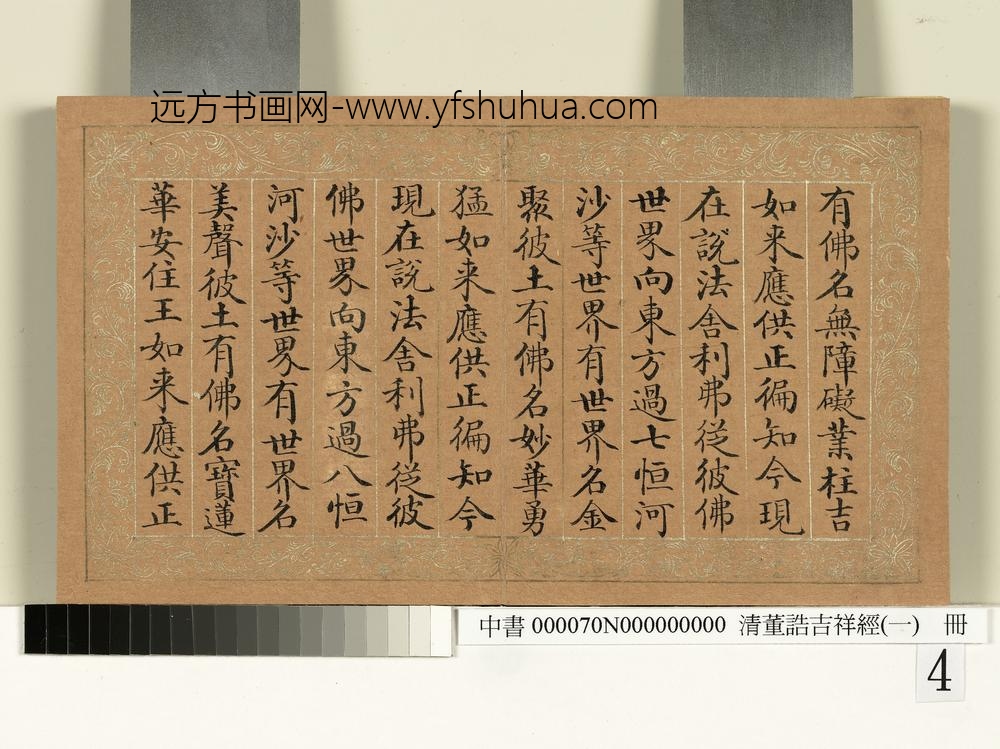 远方书画网-www.yfshuhua.com
有佛名無障礙業柱吉
如来應供正徧知今現
在說法舍利弗從彼佛
世界向東方過七恒河
沙等世界有世界名金
聚彼土有佛名妙華勇
猛如来應供正徧知今
現在說法舍利弗從彼
佛世界向東方過八恒
河沙等世界有世界名
美聲彼土有佛名寶蓮
華安住王如来應供正
中書 000070N000000000 清董誥吉祥經(一) 冊
4